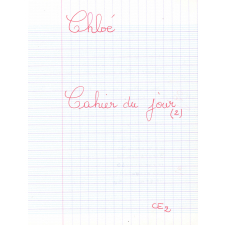 Chloé
Cahier du jour
(2)
CE2